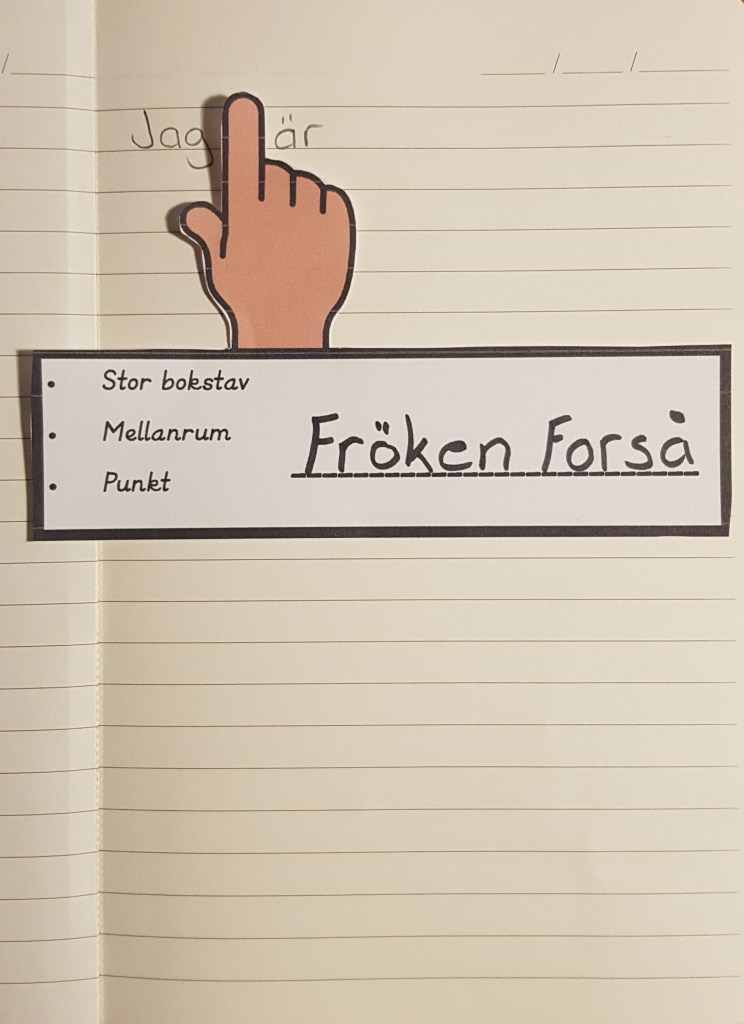 / / /
Jag är
Stor bokstav
Mellanrum
Punkt
Fröken Forså